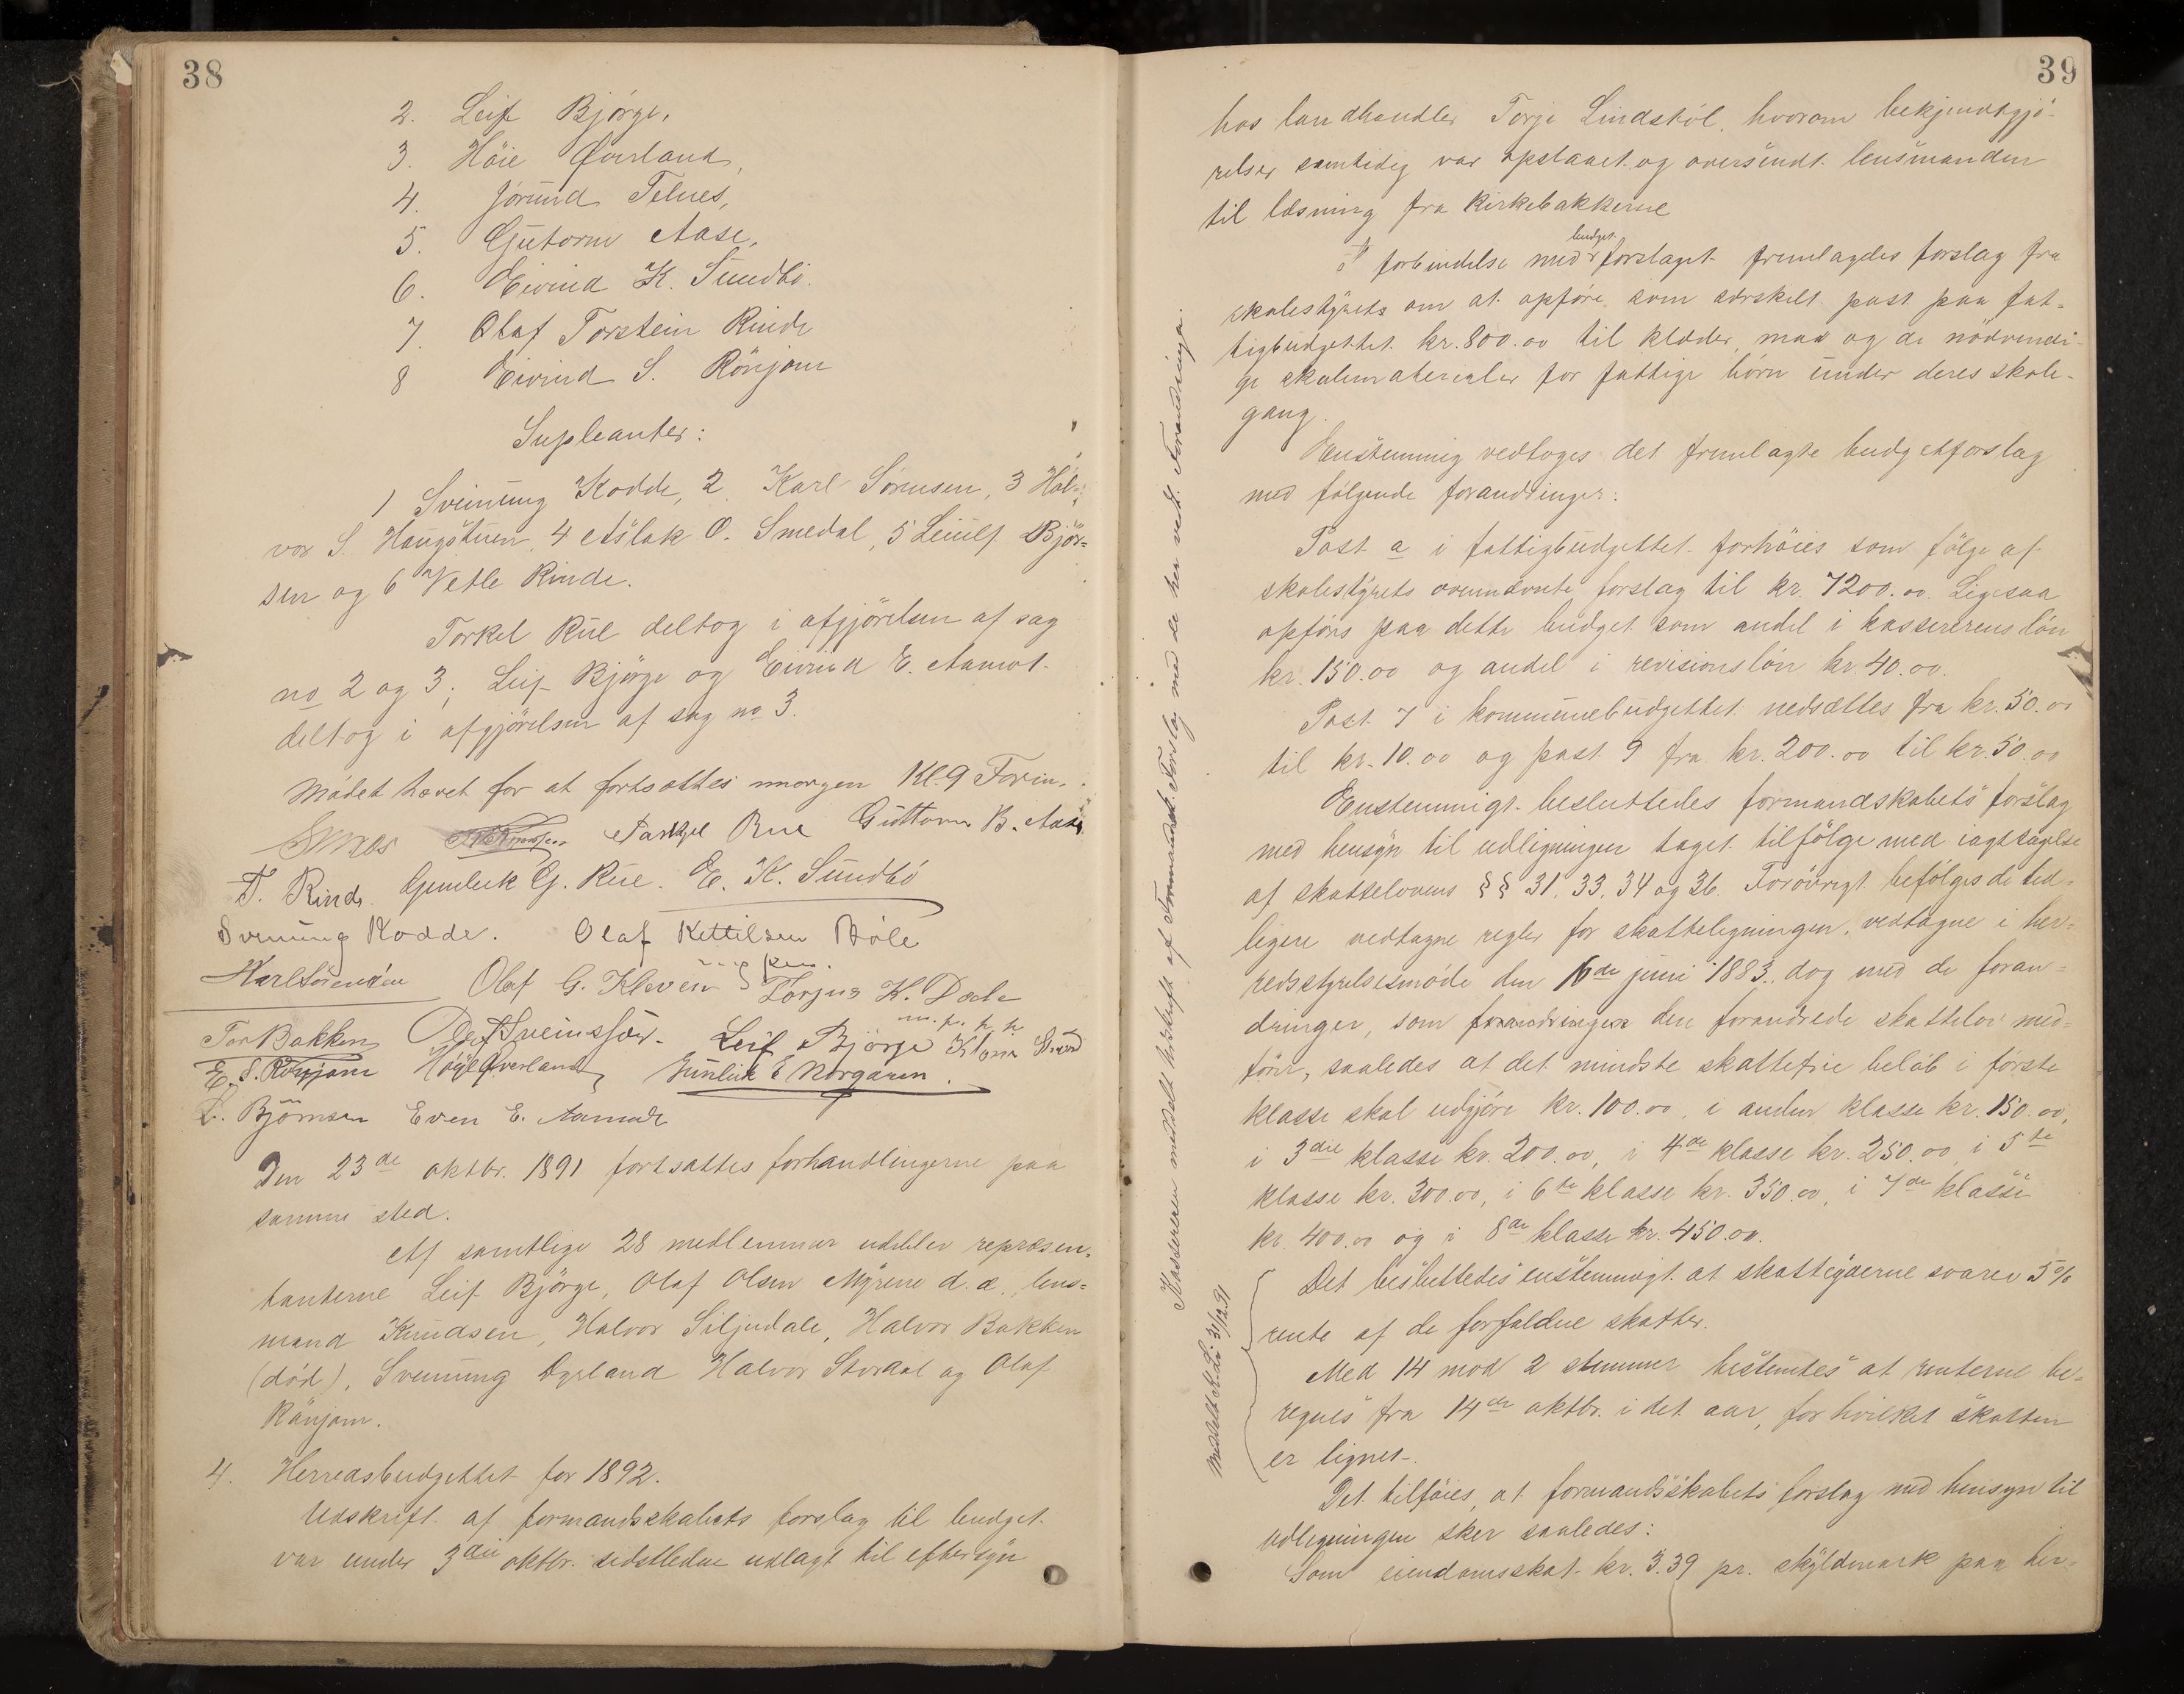 38
2. Leif Bjørge,
3. Höie Øverland,
4. Jørund Telnes,
5. Gutorm Aase,
6. Eivind K. Sundbö.
7. Olaf Torstein Rinde
8 Eivind S. Rönjom
Supleanter:
1 Sveinung Kodde, 2 Karl Sörensen, 3 Hal-
vor S. Haugstuen, 4 Aslak O. Smedal, 5 Leiulf Bjön=
sen og 6 Vetle Rinde.
Torkel Rue deltog i afgjörelsen af sag
no 2 og 3; Leif Bjørge og Eivind E. Aamot
deltog i afgjörelsen af sag no 3.
Mödet hævet for at fortsættes imorgen Kl. 9 Form.
Tarkjel Rue Guttorm B. Aase
T. Rinde. Gunleik G. Rue. E. K. Sundbö
Svenung Kodde. Olaf Kettilsen Böle
Karl Sörensen Olaf G. Kleven Torjus K. Dale
m. p. p.
Tor Bakken Olaf Sveinsson. Leif Bjørge
E. S. Rönjom Höye Øverland, Gunleik E Norgaren.
L. Björnsen Even E. Aamodt
Den 23de oktbr. 1891 fortsattes forhandlingerne paa
samme sted.
Af samtlige 28 medlemmer udeblev repræsen-
tanterne Leif Bjørge, Olaf Olsen Myrene d. æ., lens=
mand Knudsen, Halvor Siljudale, Halvor Bakken
(död), Svenung Dyrland Halvor Stordal og Olaf
Rönjom.
4. Herredsbudgettet for 1892.
Udskrift af formandskabets forslag til budget
var under 3die oktbr. sidstledne udlagt til eftersyn
39
hos landhandler Torje Lindsköl, hvorom bekjendtgjö-
relser samtidig var opslaaet og oversendt lensmanden
til læsning fra kirkebakkerne
I forbindelse med budget forslaget fremlagdes forslag fra
skolestyrets om at opföre som særskilt post paa fat=
tigbudgettet kr. 800.00 til klæder, mad og de nödvendi-
ge skolematerialer for fattige börn under deres skole-
gang.
Enstemmig vedtoges det fremlagte budgetforslag
med fölgende forandringer:
Post a i fattigbudgettet forhöies som fölge af
skolestyrets ovennævnte forslag til kr. 7200.00. Ligesaa
opföres paa dette budget som andel i kassererens lön
kr. 150.00 og andel i revisionslön kr. 40.00.
Post 7 i kommunebudgettet nedsættes fra kr. 50.00
til kr. 10.00 og post 9 fra kr. 200.00 til kr. 50.00
Enstemmigt besluttedes formandskabets forslag
med hensyn til udligningen taget tilfölge med iagttagelse
af skattelovens §§ 31. 33. 34 og 36. Forövrigt befölges de tid=
ligere vedtagne regler for skatteligningen, vedtagne i her=
redsstyrelsesmöde den 16de juni 1883, dog med de foran=
dringer, som forandringer den forandrede skattelov med-
förer, saaledes at det mindste skattefrie belöb i förste
klasse skal udgjöre kr. 100.00, i anden klasse kr. 150.00,
i 3die klasse kr. 200.00, i 4de klasse kr. 250.00, i 5te
klasse kr. 300.00, i 6te klasse kr. 350.00, i 7de klasse
kr. 400.00 og i 8de klasse kr. 450.00.
Det besluttedes enstemmigt at skatteyderne svarer 5%
rente af de forfaldne skatter.
Med 14 mod 2 stemmer bestemtes at renterne be-
regnes fra 14de oktbr. i det aar, for hvilket skatten
er lignet.
Det tilföies, at formandsskabets forslag med hensyn til
udligningen sker saaledes:
Som eiendomsskat kr. 3.39 pr. skyldmark paa her=
Kassereren meddelt Udskrift af Formandsk. Forslag med de her vedt. Forandringer.